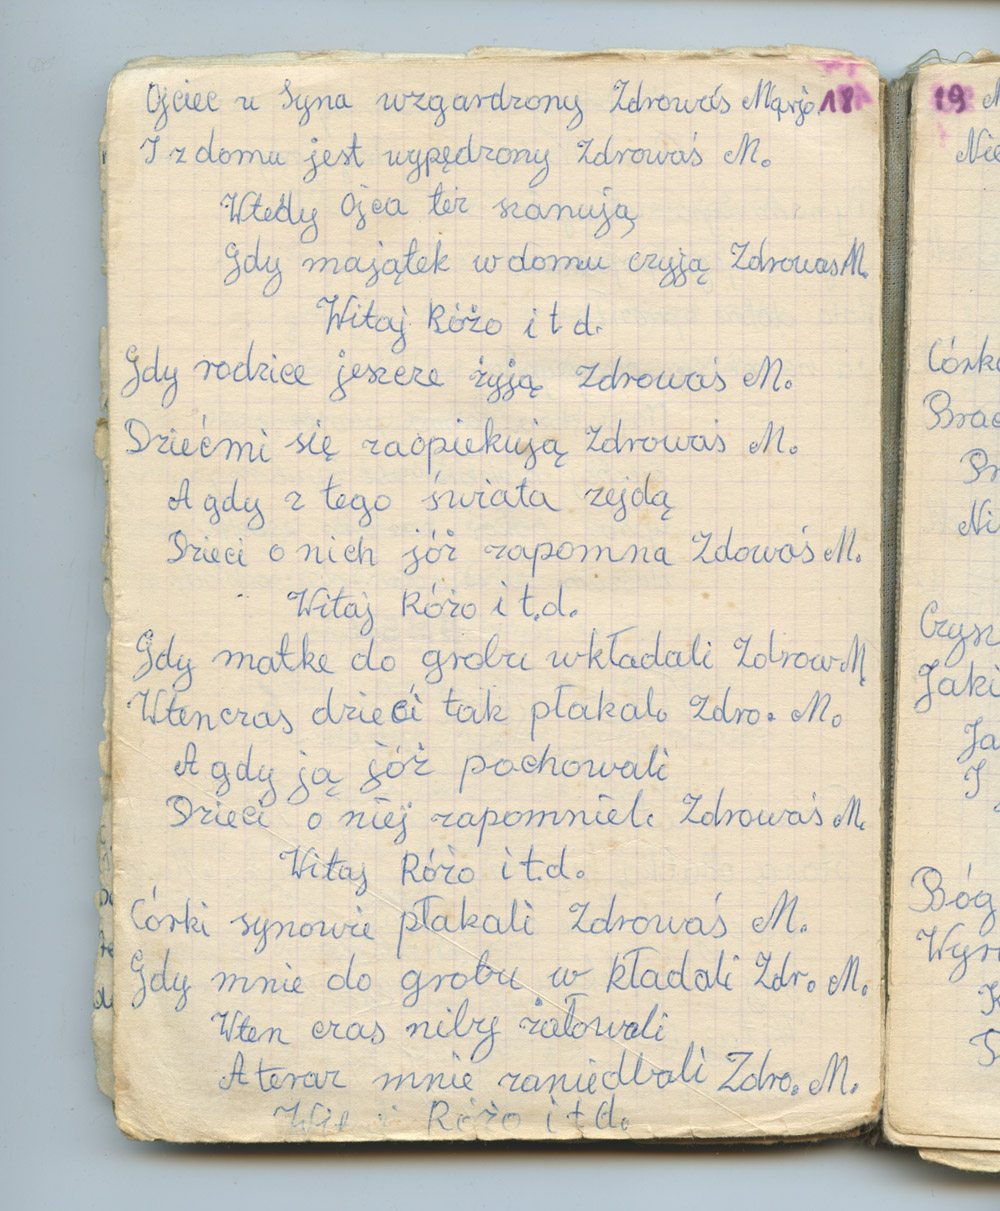 Ojciec u Syna wzgardzony Zdrowaś Maryjo. 18
I z domu jest wypędzony Zdrowaś M.
Wtedy Ojca też szanują
Gdy majątek w domu czyją Zdrowas M.
Witaj Różo i t d.
Gdy rodzice jeszcze żyją Zdrowaś M.
Dziećmi się zaopiekują Zdrowaś M.
A gdy z tego świata zejdą
Dzieci o nich jóż zapomna Zdowaś M.
Witaj Różo i t.d.
Gdy matke do grobu wkładali Zdrow M
Wtenczas dzieci tak płakali Zdro. M.
A gdy ją jóż pochowali
Dzieci o niej zapomnieli Zdrowaś M.
Witaj Różo i t.d.
Córki synowie płakali Zdrowaś M.
Gdy mnie do grobu w kładali Zdr. M.
Wten czas niby żałowali
A teraz mnie zaniedbali Zdro. M.
Witaj Różo i t d.
19
Nie
Córk
Brac
Pr
Ni
Czysz
Jaki
Ja
I
Bóg
Wyr